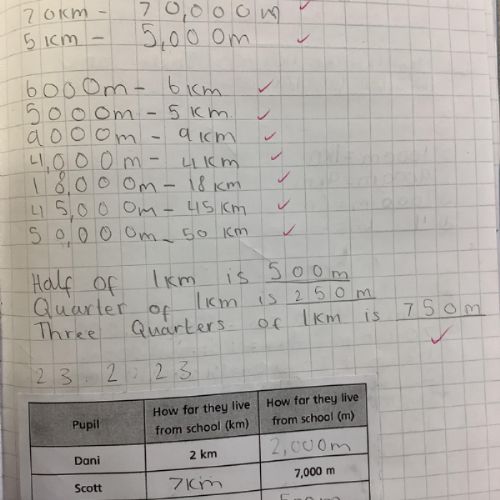 70km - 70,000m
5km - 5,000m
6000m - 6km
5000m - 5km
9000m - 9km
4,000m - 4km
18,000m - 18km
45,000m - 45km
50,000m - 50 km
Half of 1km is 500m
Quarter of 1km is 250m
Three Quarters of 1km is 750m
23.2.23
Pupil How far they live from school (km) How far they live from school (m)
Dani 2 km 2,000m
Scott 7km 7,000 m